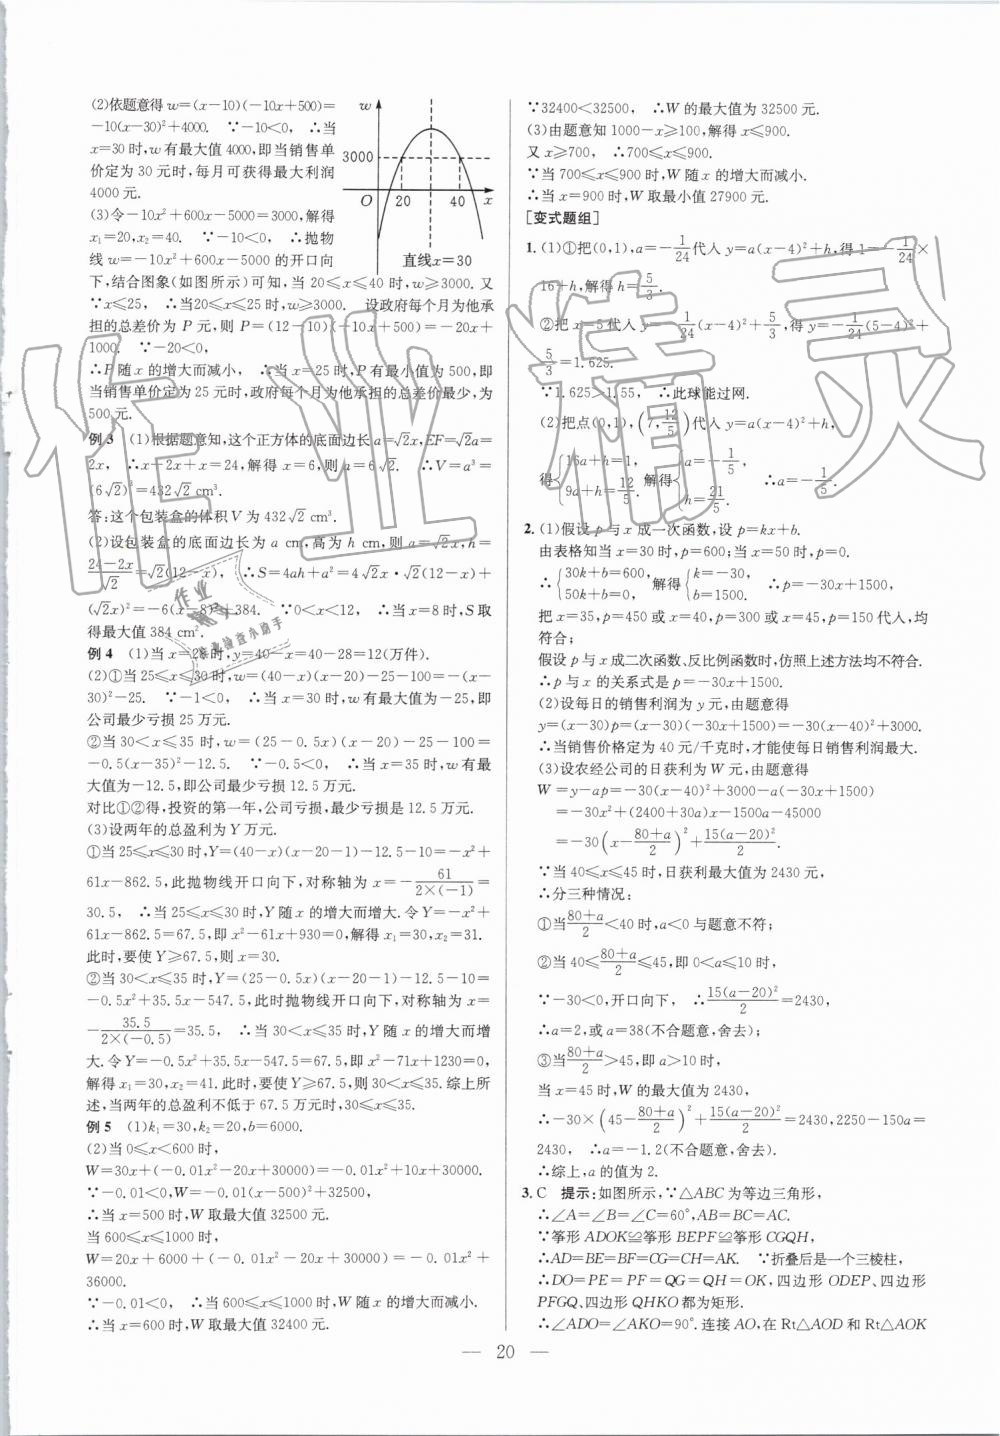 (2)依题意得 w=(x-10)(-10x+500)=
-10(x-30)²+4000. ∵-10<0, ∴当
x=30时,w有最大值4000,即当销售单
价定为30元时,每月可获得最大利润
4000元.
(3)令-10x²+600x-5000=3000,解得
x₁=20,x₂=40. ∵-10<0, ∴抛物
线 w=-10x²+600x-5000的开口向
w
3000
O
20
40
x
直线x=30
下,结合图象(如图所示)可知,当20≤x≤40时,w≥3000. 又
∵x≤25, ∴当20≤x≤25时,w≥3000. 设政府每个月为他承
担的总差价为P元,则P=(12-10)(-10x+500)=-20x+
1000. ∵-20<0,
∴P随x的增大而减小, ∴当x=25时,P有最小值500,即
当销售单价定为25元时,政府每个月为他承担的总差价最少,为
500元.
例3 (1)根据题意知,这个正方体的底面边长a=√2x,EF=√2a=
2x, ∴x+2x+x=24,解得x=6,则a=6√2. ∴V=a³=
(6√2)³=432√2 cm³.
答:这个包装盒的体积V为432√2 cm³.
(2)设包装盒的底面边长为a cm,高为h cm,则a=√2x,h=
(24-2x)/√2=√2(12-x), ∴S=4ah+a²=4√2x·√2(12-x)+
(√2x)²=-6(x-8)²+384. ∵0<x<12, ∴当x=8时,S取
得最大值384 cm².
例4 (1)当x=28时,y=40-x=40-28=12(万件).
(2)①当25≤x≤30时,w=(40-x)(x-20)-25-100=-(x-
30)²-25. ∵-1<0, ∴当x=30时,w有最大值为-25,即
公司最少亏损25万元.
②当30<x≤35时,w=(25-0.5x)(x-20)-25-100=
-0.5(x-35)²-12.5. ∵-0.5<0, ∴当x=35时,w有最
大值为-12.5,即公司最少亏损12.5万元.
对比①②得,投资的第一年,公司亏损,最少亏损是12.5万元.
(3)设两年的总盈利为Y万元.
①当25≤x≤30时,Y=(40-x)(x-20-1)-12.5-10=-x²+
61x-862.5,此抛物线开口向下,对称轴为x=-61/(2×(-1))=
30.5, ∴当25≤x≤30时,Y随x的增大而增大.令Y=-x²+
61x-862.5=67.5,即x²-61x+930=0,解得x₁=30,x₂=31.
此时,要使Y≥67.5,则x=30.
②当30<x≤35时,Y=(25-0.5x)(x-20-1)-12.5-10=
-0.5x²+35.5x-547.5,此时抛物线开口向下,对称轴为x=
-35.5/(2×(-0.5))=35.5, ∴当30<x≤35时,Y随x的增大而增
大.令Y=-0.5x²+35.5x-547.5=67.5,即x²-71x+1230=0,
解得x₁=30,x₂=41.此时,要使Y≥67.5,则30<x≤35.综上所
述,当两年的总盈利不低于67.5万元时,30≤x≤35.
例5 (1)k₁=30,k₂=20,b=6000.
(2)当0≤x<600时,
W=30x+(-0.01x²-20x+30000)=-0.01x²+10x+30000.
∵-0.01<0,W=-0.01(x-500)²+32500,
∴当x=500时,W取最大值32500元.
当600≤x≤1000时,
W=20x+6000+(-0.01x²-20x+30000)=-0.01x²+
36000.
∵-0.01<0, ∴当600≤x≤1000时,W随x的增大而减小.
∴当x=600时,W取最大值32400元.
∵32400<32500, ∴W的最大值为32500元.
(3)由题意知1000-x≥100,解得x≤900.
又x≥700, ∴700≤x≤900.
∵当700≤x≤900时,W随x的增大而减小.
∴当x=900时,W取最小值27900元.
[变式题组]
1. (1)①把(0,1),a=-1/24代入y=a(x-4)²+h,得1=-1/24×
16+h,解得h=5/3.
②把x=5代入y=-1/24(x-4)²+5/3,得y=-1/24(5-4)²+
5/3=1.625.
∵1.625>1.55, ∴此球能过网.
(2)把点(0,1),(7,12/5)代入y=a(x-4)²+h,
得{16a+h=1, 9a+h=12/5, 解得{a=-1/5, h=21/5. ∴a=-1/5.
2. (1)假设p与x成一次函数,设p=kx+b.
由表格知当x=30时,p=600;当x=50时,p=0.
∴{30k+b=600, 50k+b=0, 解得{k=-30, b=1500. ∴p=-30x+1500,
把x=35,p=450或x=40,p=300或x=45,p=150代入,均
符合;
假设p与x成二次函数、反比例函数时,仿照上述方法均不符合.
∴p与x的关系式是p=-30x+1500.
(2)设每日的销售利润为y元,由题意得
y=(x-30)p=(x-30)(-30x+1500)=-30(x-40)²+3000.
∴当销售价格定为40元/千克时,才能使每日销售利润最大.
(3)设农经公司的日获利为W元,由题意得
W=y-ap=-30(x-40)²+3000-a(-30x+1500)
=-30x²+(2400+30a)x-1500a-45000
=-30(x-(80+a)/2)²+15(a-20)²/2.
∵当40≤x≤45时,日获利最大值为2430元,
∴分三种情况:
①当(80+a)/2<40时,a<0与题意不符;
②当40≤(80+a)/2≤45,即0<a≤10时,
∵-30<0,开口向下, ∴15(a-20)²/2=2430,
∴a=2,或a=38(不合题意,舍去);
③当(80+a)/2>45,即a>10时,
当x=45时,W的最大值为2430,
∴-30×(45-(80+a)/2)²+15(a-20)²/2=2430,2250-150a=
2430, ∴a=-1.2(不合题意,舍去).
∴综上,a的值为2.
3. C 提示:如图所示,∵△ABC为等边三角形,
∴∠A=∠B=∠C=60°,AB=BC=AC.
∵筝形ADOK≌筝形BEPF≌筝形CGQH,
∴AD=BE=BF=CG=CH=AK. ∵折叠后是一个三棱柱,
∴DO=PE=PF=QG=QH=OK,四边形ODEP、四边形
PFGQ、四边形QHKO都为矩形.
∴∠ADO=∠AKO=90°.连接AO,在Rt△AOD和Rt△AOK
— 20 —
作业精灵
作业
精灵
作业检查小助手